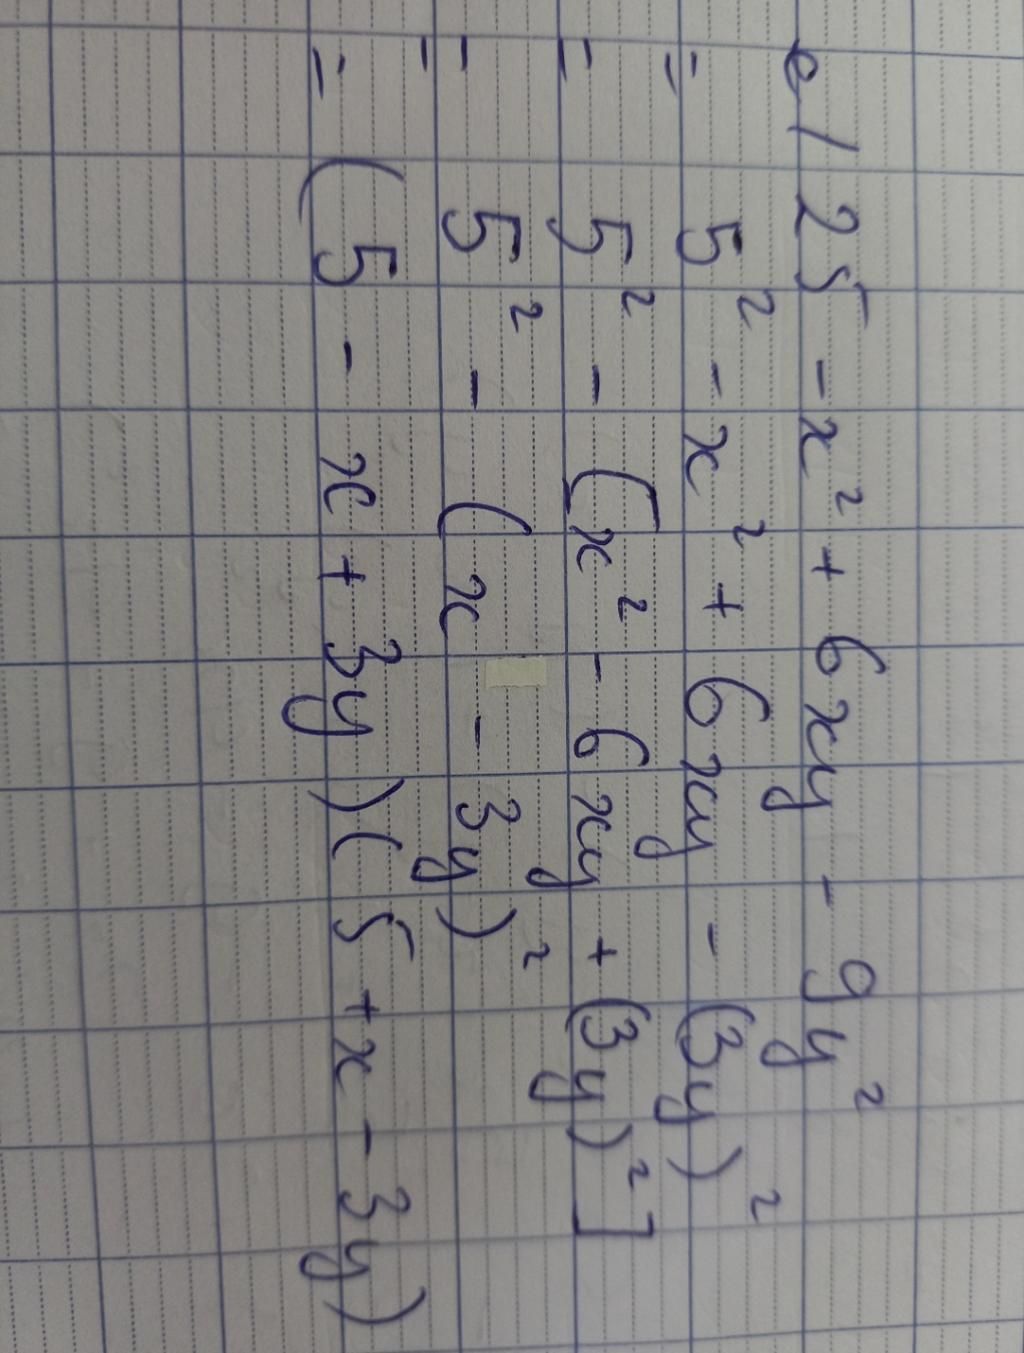 e/ 25 - x² + 6xy - 9y²
= 5² - x² + 6xy - (3y)²
= 5² - [x² - 6xy + (3y)²]
= 5² - (x - 3y)²
= (5 - x + 3y)(5 + x - 3y)